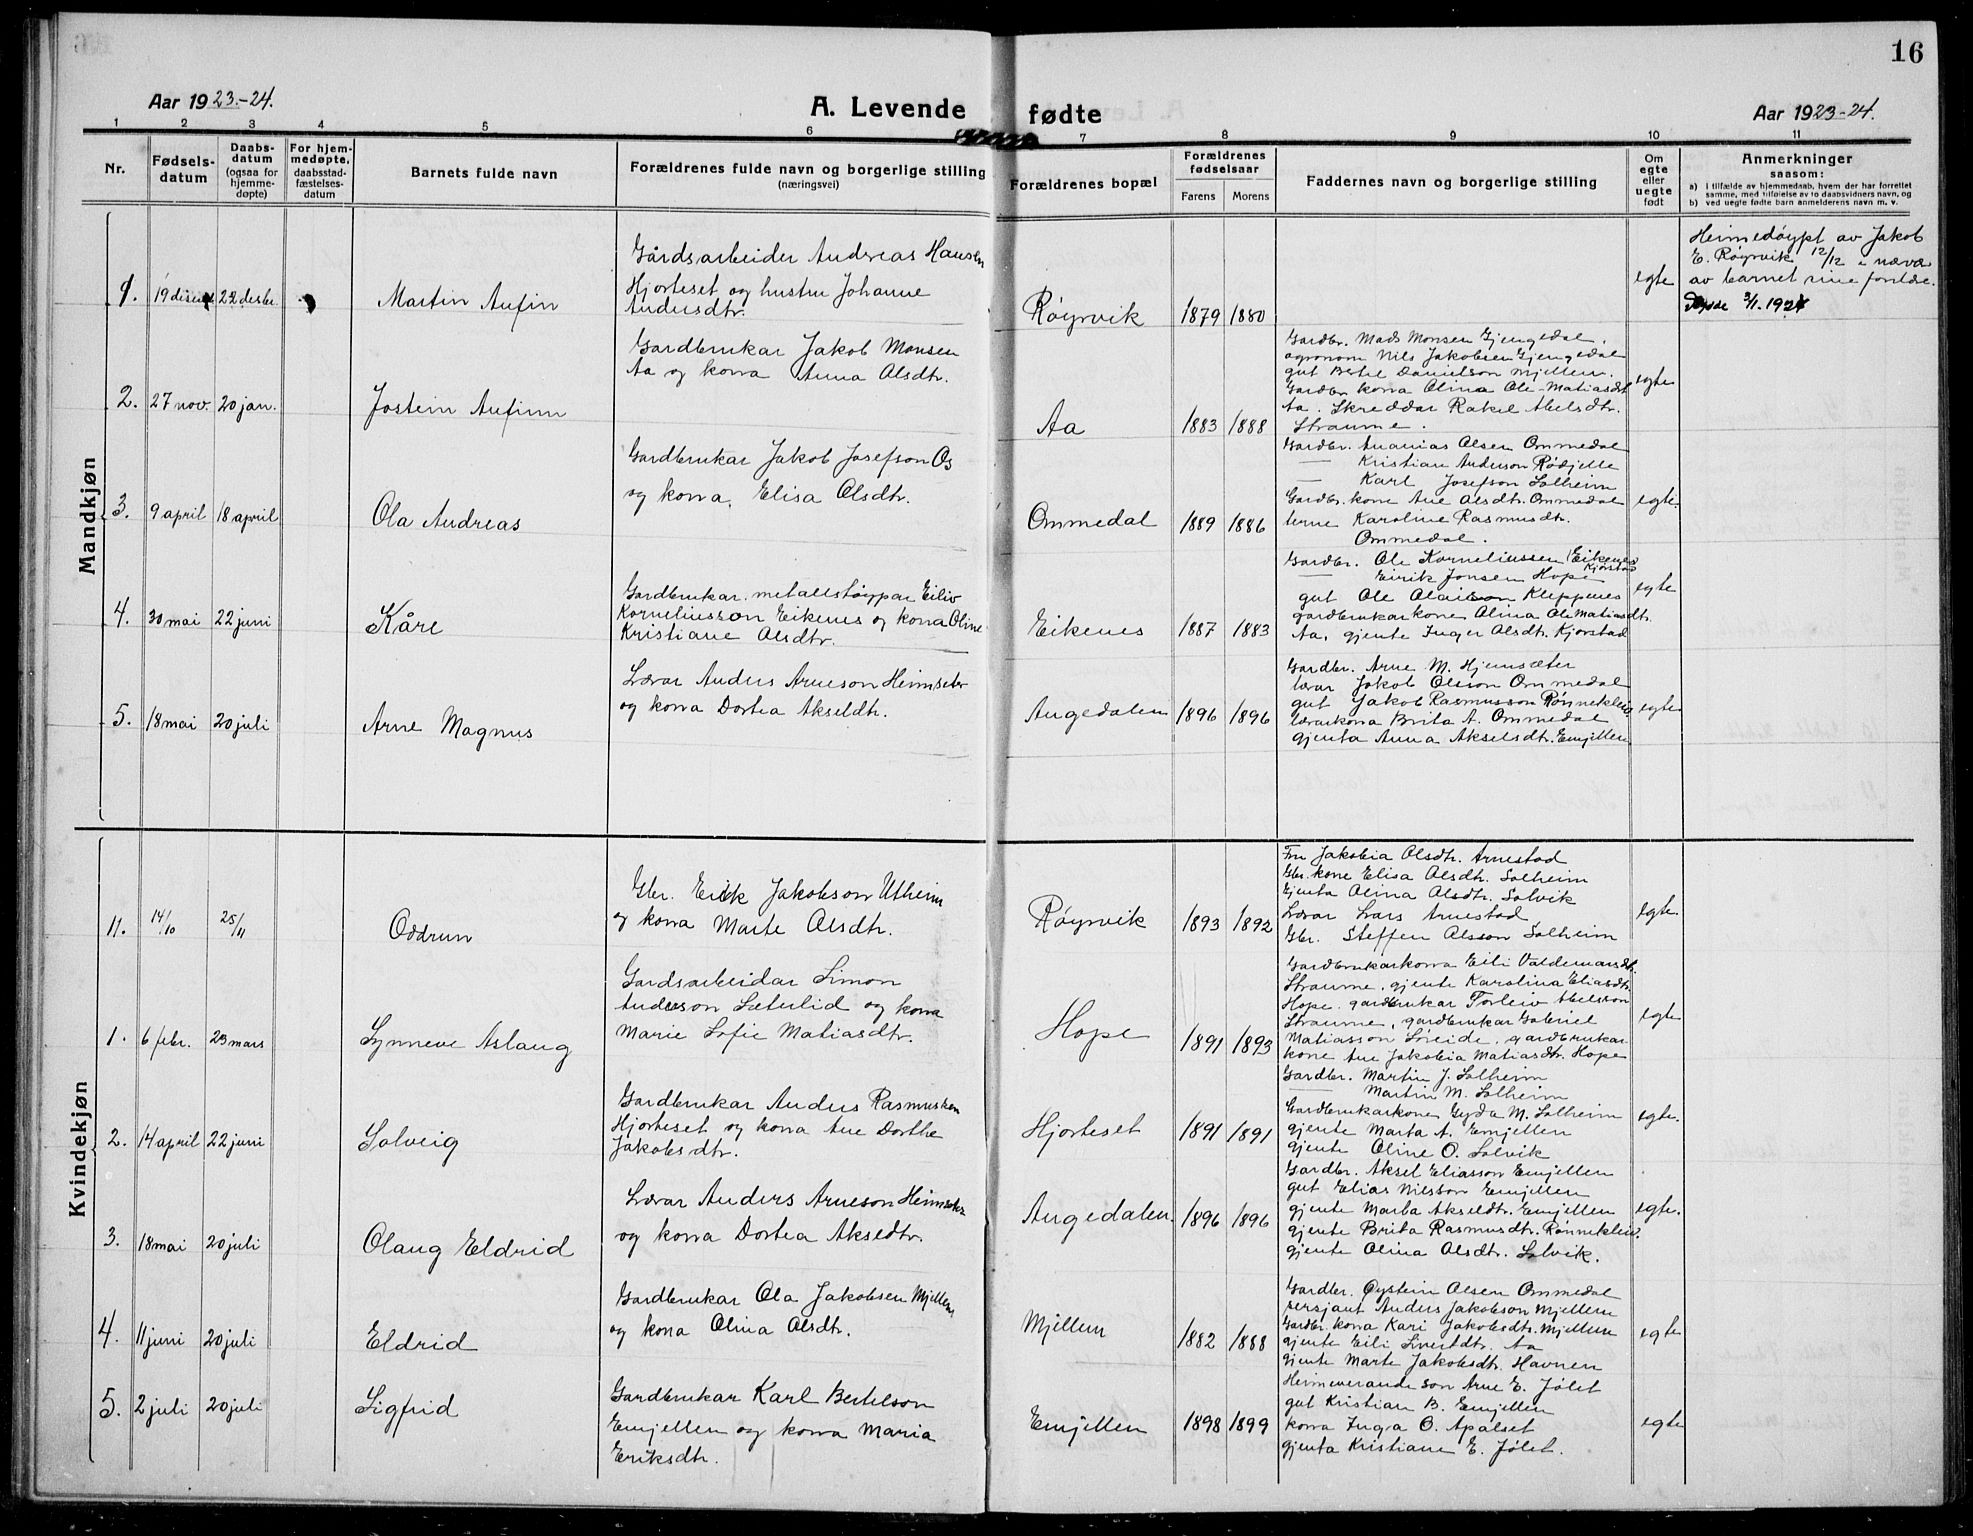 16
Aar 1923.-24.
A. Levende fødte
Aar 1923-24.
1 2 3 4 5 6 7 8 9 10 11
Nr.
Fødsels-
datum
Daabs-
datum
(ogsaa for
hjemme-
døpte)
For hjem-
medøpte,
daabsstad-
fæstelses-
datum
Barnets fulde navn
Forældrenes fulde navn og borgerlige stilling
(næringsvei)
Forældrenes bopæl
Forældrenes
fødselsaar
Farens Morens
Faddernes navn og borgerlige stilling
Om
egte
eller
uegte
født
Anmerkninger
saasom:
a) i tilfælde av hjemmedaab, hvem der har forrettet
samme, med tilføielse av to daabsvidners navn, og
b) ved uegte fødte barn anmelderens navn m. v.
Mandkjøn
1. 22 desbr.
Martin Anfin
Gårdsarbeider Andreas Hansen
Hjorteset og hustru Johanne
Andersdtr.
Røyrvik 1879 1880
egte
Heimedøypt av Jakob
E. Røyrvik 12/12
av barnet sine
2. 27 nov. 20 jan.
Jostein Anfinn
Gardbrukar Jakob Monsen
Aa og kona Anna Olsdtr.
Aa 1883 1888
Gardbr. Mads Monsen Gjengedal.
agronom Nils Jakobsen Gjengedal
gut Bertel Danielson Mjellem.
Gardbr. kona Olina Ole-Matiasdt
Aa. Skreddar Rakel Abelsdtr.
Straume.
egte
3. 9 april 18 april
Ola Andreas
Gardbrukar Jakob Josefson Os
og kona Elisa Olsdtr.
Ommedal 1889 1886
Gardbr. Ananias Olsen Ommedal
— Kristian Anderson Rødjelle
— Karl Josefson Solheim
Gardbr. kone Ane Olsdtr. Ommedal
terne Karoline Rasmusdtr.
Ommedal.
egte.
4. 30 mai 22 juni
Kåre
Gardbrukar. metallstøypar Eiliv
Korneliusson Eikenes og kona Oline
Kristiane Olsdtr.
Eikenes 1887 1883
Gardbr. Ole Korneliussen (Eikenes
Kjørstad
— Eirik Jonsen Hope
gut Ole Kleppenes
gardbrukarkone Alina Ole Matiasdtr.
Aa, gjente Inger Olsdtr. Kjørstad
egte
5. 18 mai 20 juli
Arne Magnus
Lærar Anders Arneson Heimseter
og kona Dortea Akseldtr.
Angedalen 1896 1896
Gardbr. Arne M. Hjemsæter
lærar Jakob Olsson Ommedal
gut Jakob Rasmusson Rønneklein.
lærarkona Brita A. Ommedal
gjenta Anna Akselsdtr. Emjellen.
egte
Kvindekjøn
11. 14/10 25/11
Oddrun
Gbr. Erik Jakobson Utheim
og kona Marte Olsdtr.
Røyrvik 1893 1892
Fru Jakobia Olsdtr. Arnestad
Gbr. kone Elisa Olsdtr. Solheim
Gjenta Olina Olsdtr. Solvik
Lærar Lars Arnestad
Gbr. Steffen Olsson Solheim
egte.
1. 6 febr. 23 mars
Synneve Aslaug
Gardsarbeidar Simon
Anderson Sæterlid og kona
Marie Sofie Matiasdtr.
Hope 1891 1893
Gardbrukarkona Eili Valdemarsdt.
Straume, gjente Karolina Eliasdtr.
Hope. gardbrukar Torleiv Abelson
Straume, gardbrukar Gabriel
Matiasson Søreide, gardbrukar-
kone Ane Jakobia Matiasdtr. Hope
egte
2. 14 april 22 juni
Solveig
Gardbrukar Anders Rasmussen
Hjorteset og kona Ane Dorthe
Jakobsdtr.
Hjorteset 1891 1891
Gardbr. Martin J. Solheim
— Martin M. Solheim
Gardbrukarkone Gyda M. Solheim
gjente Marta A. Emjellen
gjente Oline O. Solvik
egte.
3. 18 mai 20 juli
Olaug Eldrid
Lærar Anders Arneson Heimseter
og kona Dortea Akseldtr.
Angedalen. 1896 1896
Gardbr. Aksel Eliasson Emjellen
gut Elias Nilsson Emjellen
gjente Marta Akseldtr. Emjellen
gjente Brita Rasmusdtr. Rønneklein.
gjente Olina Olsdtr. Solvik.
egte.
4. 11 juni 20 juli
Eldrid
Gardbrukar Ola Jakobsen Mjellem
og kona Olina Olsdtr.
Mjellem 1882 1888
Gardbr. Øystein Olsen Ommedal
sersjant Anders Jakobson Mjellem
Gardbr. kona Kari Jakobsdtr. Mjellem
gjente Eili Sivertdtr. Aa
gjente Marte Jakobsdtr. Havnen
egte
5. 2 juli 20 juli
Sigfrid
Gardbrukar Karl Bertelson
Emjellen og kona Maria
Eriksdtr.
Emjellen 1898 1899
Heimeverande son Arne E. Jølet
gut Kristian B. Emjellen
kona Inga O. Apalset
gjenta Kristiane E. Jølet.
egte